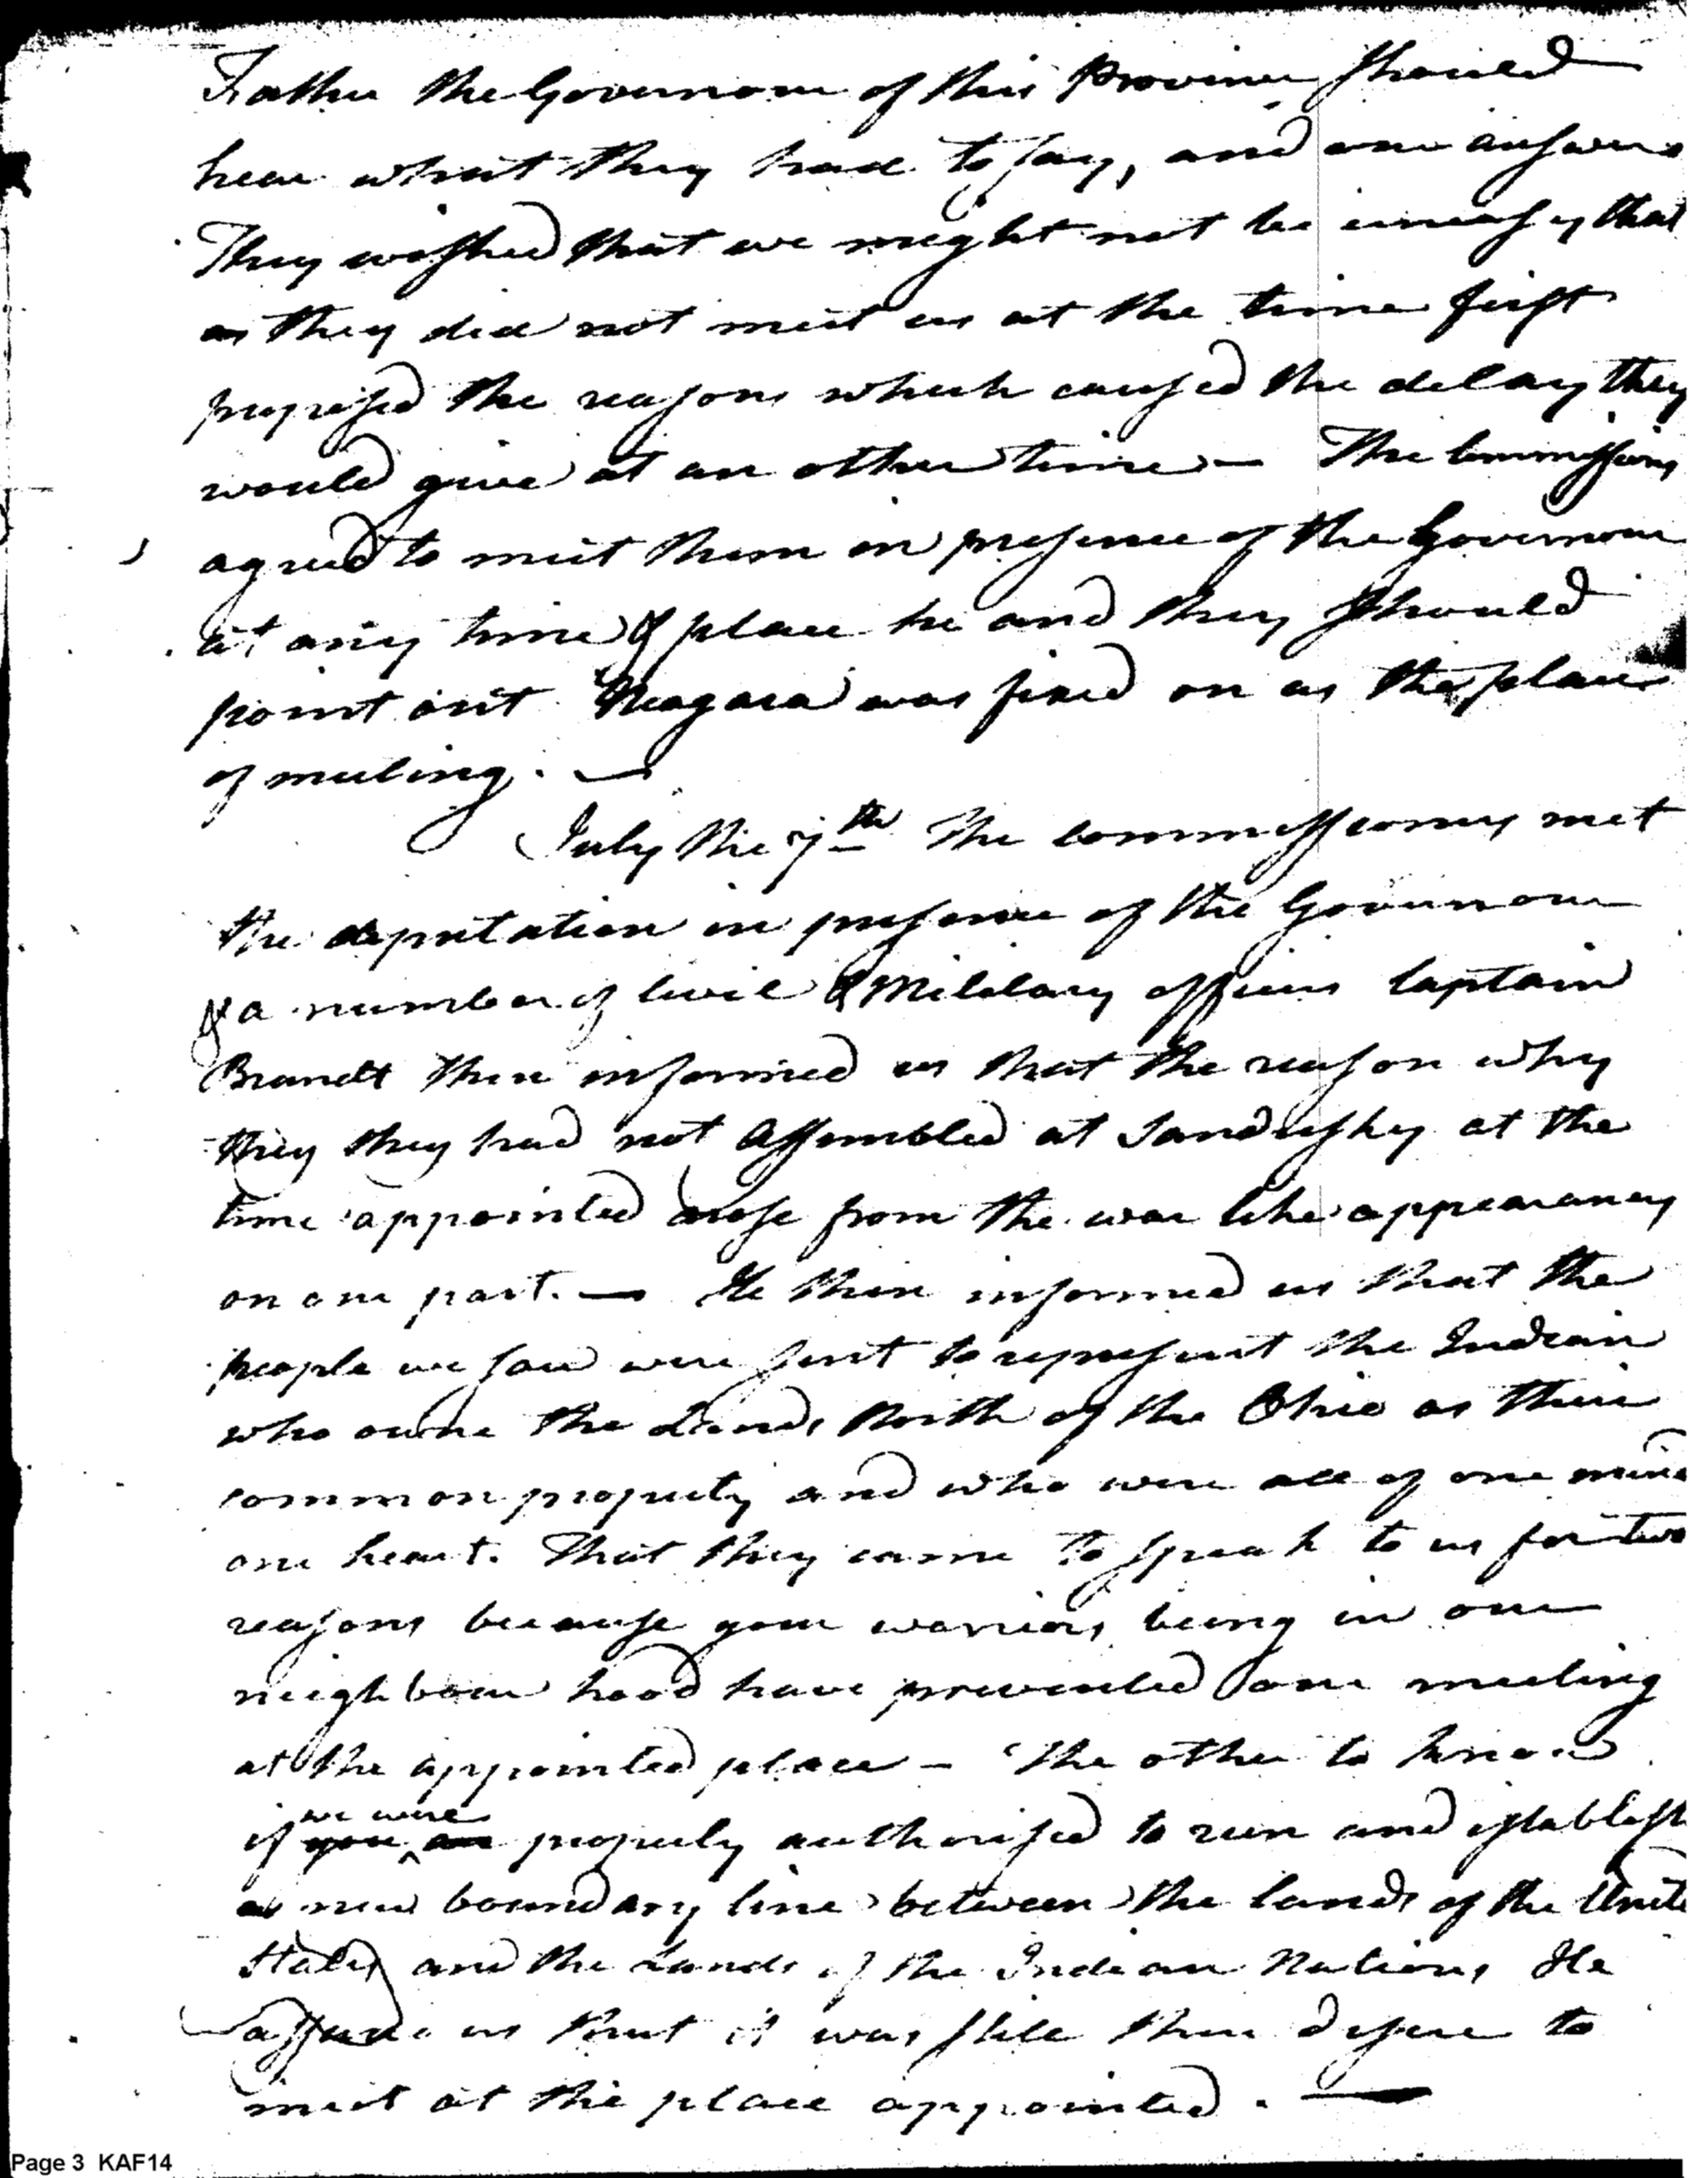 Father the Governour of this Province should
hear what they had to say, and our answers
They wished that we might not be uneasy that
as they did not meet us at the time first
proposed the reasons which caused the delay they
would give at an other time — The Commissioners
agreed to meet them in presence of the Governour
at any time & place he and they should
point out Niagara was fixed on as the place
of meeting. —
July the 7th The commissioners met
the deputation in presence of the Governour
& a number of Civil & Military officers Captain
Brandt then informed us that the reason why
they they had not Assembled at Sandusky at the
time appointed arose from the war like appearances
on our part. — He then informed us that the
people we saw were sent to represent the Indian
who owne the Lands North of the Ohio as their
common property and who were all of one mind
one heart. That they came to speak to us for two
reasons because your warriors being in our
neighbour hood have prevented our meeting
at the appointed place — The other to know
we were
if you are properly authorised to run and establish
a new boundary line between the lands of the Unite
States and the Lands of the Indian Nations He
assured us that it was still their desire to
meet at the place appointed. —
Page 3 KAF14